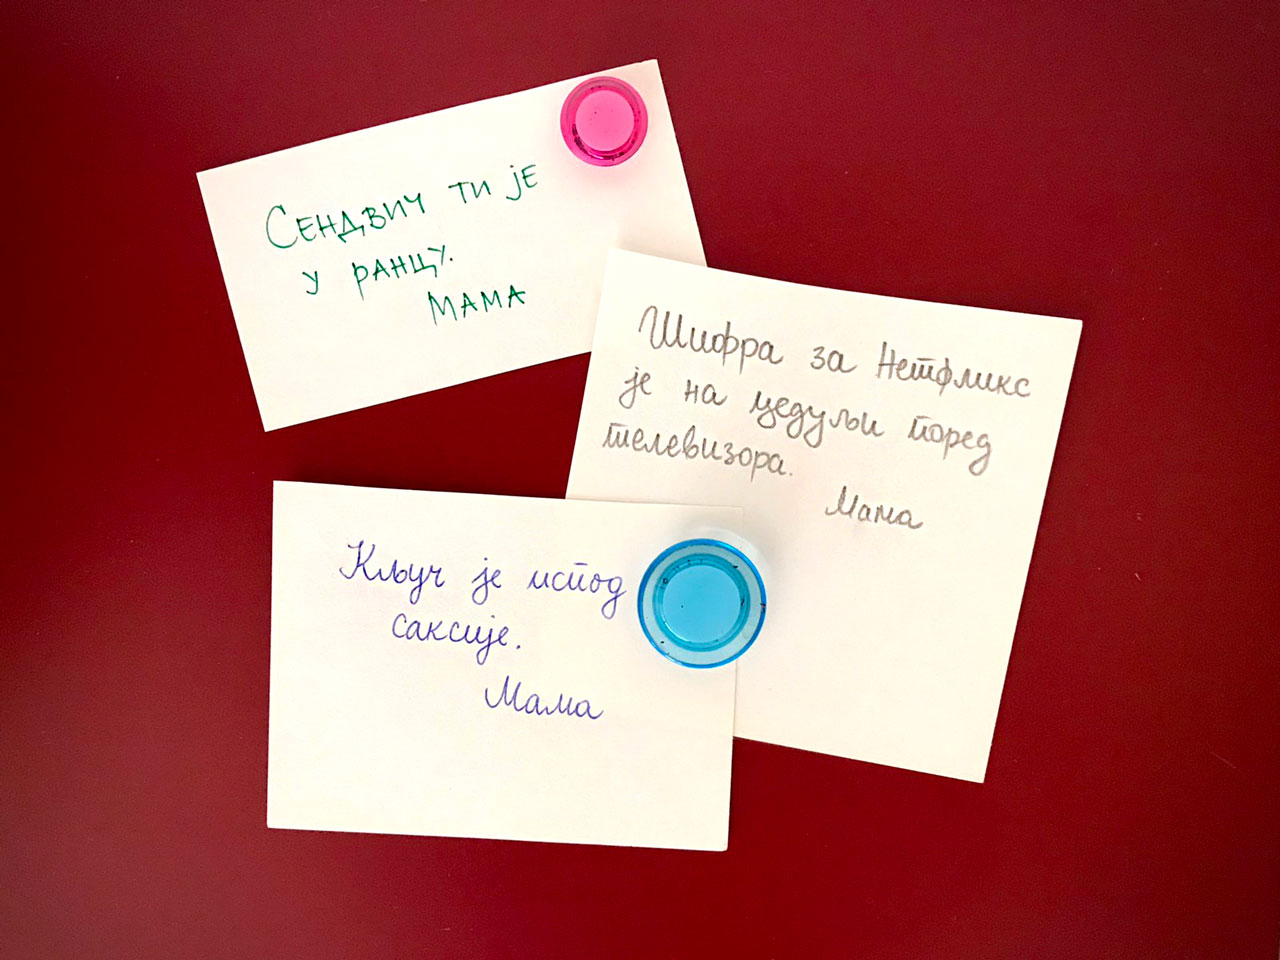 Сендвич ти је
у ранцу.
Мама
Шифра за Нетфликс
је на цедуљи поред
телевизора.
Мама
Кључ је испод
саксије.
Мама